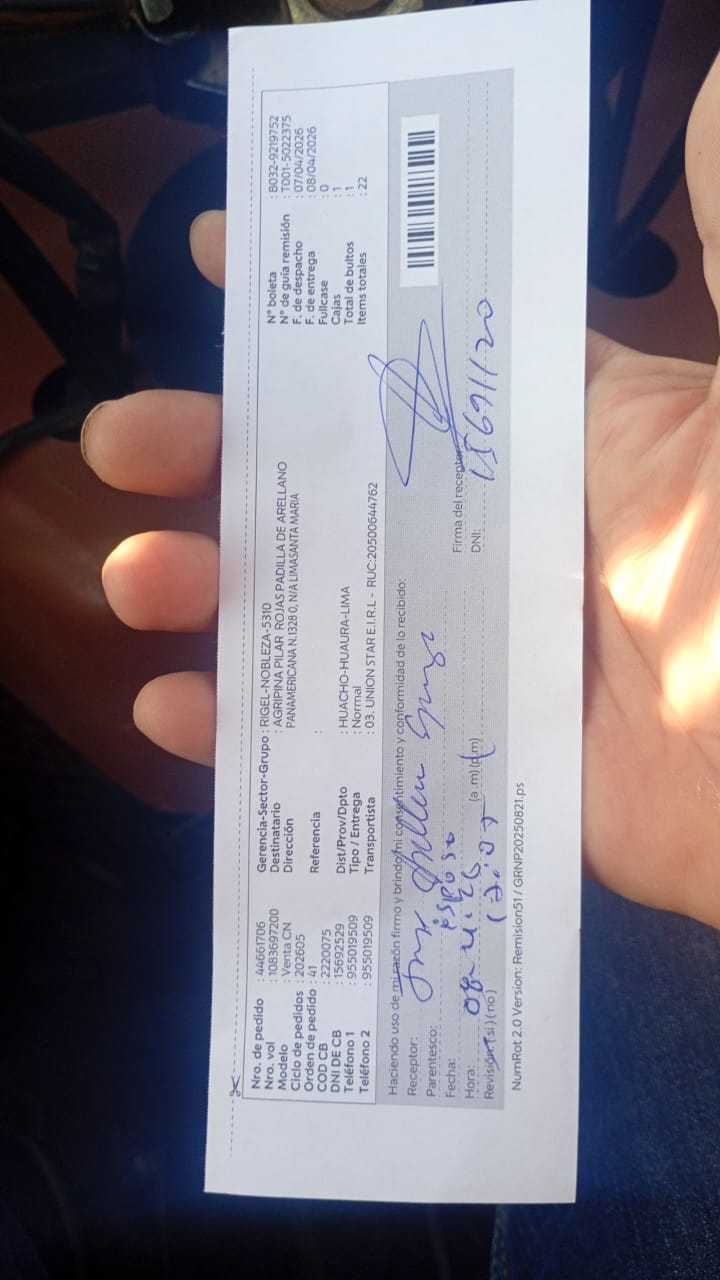 Nro. de pedido : 44661706
Nro. vol : 1083697200
Modelo : Venta CN
Ciclo de pedidos : 202605
Orden de pedido : 41
COD CB : 2220075
DNI DE CB : 15692529
Teléfono 1 : 955019509
Teléfono 2 : 955019509
Gerencia-Sector-Grupo : RIGEL-NOBLEZA-5310
Destinatario : AGRIPINA PILAR ROJAS PADILLA DE ARELLANO
Dirección PANAMERICANA N.1328 0, N/A LIMASANTA MARIA
Referencia :
Dist/Prov/Dpto : HUACHO-HUAURA-LIMA
Tipo / Entrega : Normal
Transportista : 03. UNION STAR E.I.R.L - RUC:20500644762
N° boleta : B032-9219752
N° de guía remisión : T001-5022375
F. de despacho : 07/04/2026
F. de entrega : 08/04/2026
Fullcase : 0
Cajas : 1
Total de bultos : 1
Items totales : 22
Haciendo uso de mi razón firmo y brindo mi consentimiento y conformidad de lo recibido:
Receptor:
Parentesco: esposo
Fecha: 08-4-26
Hora: (a m)(p.m)
Revisión (si) (no)
Firma del receptor
DNI:
NumRot 2.0 Version: Remision51 / GRNP20250821.ps